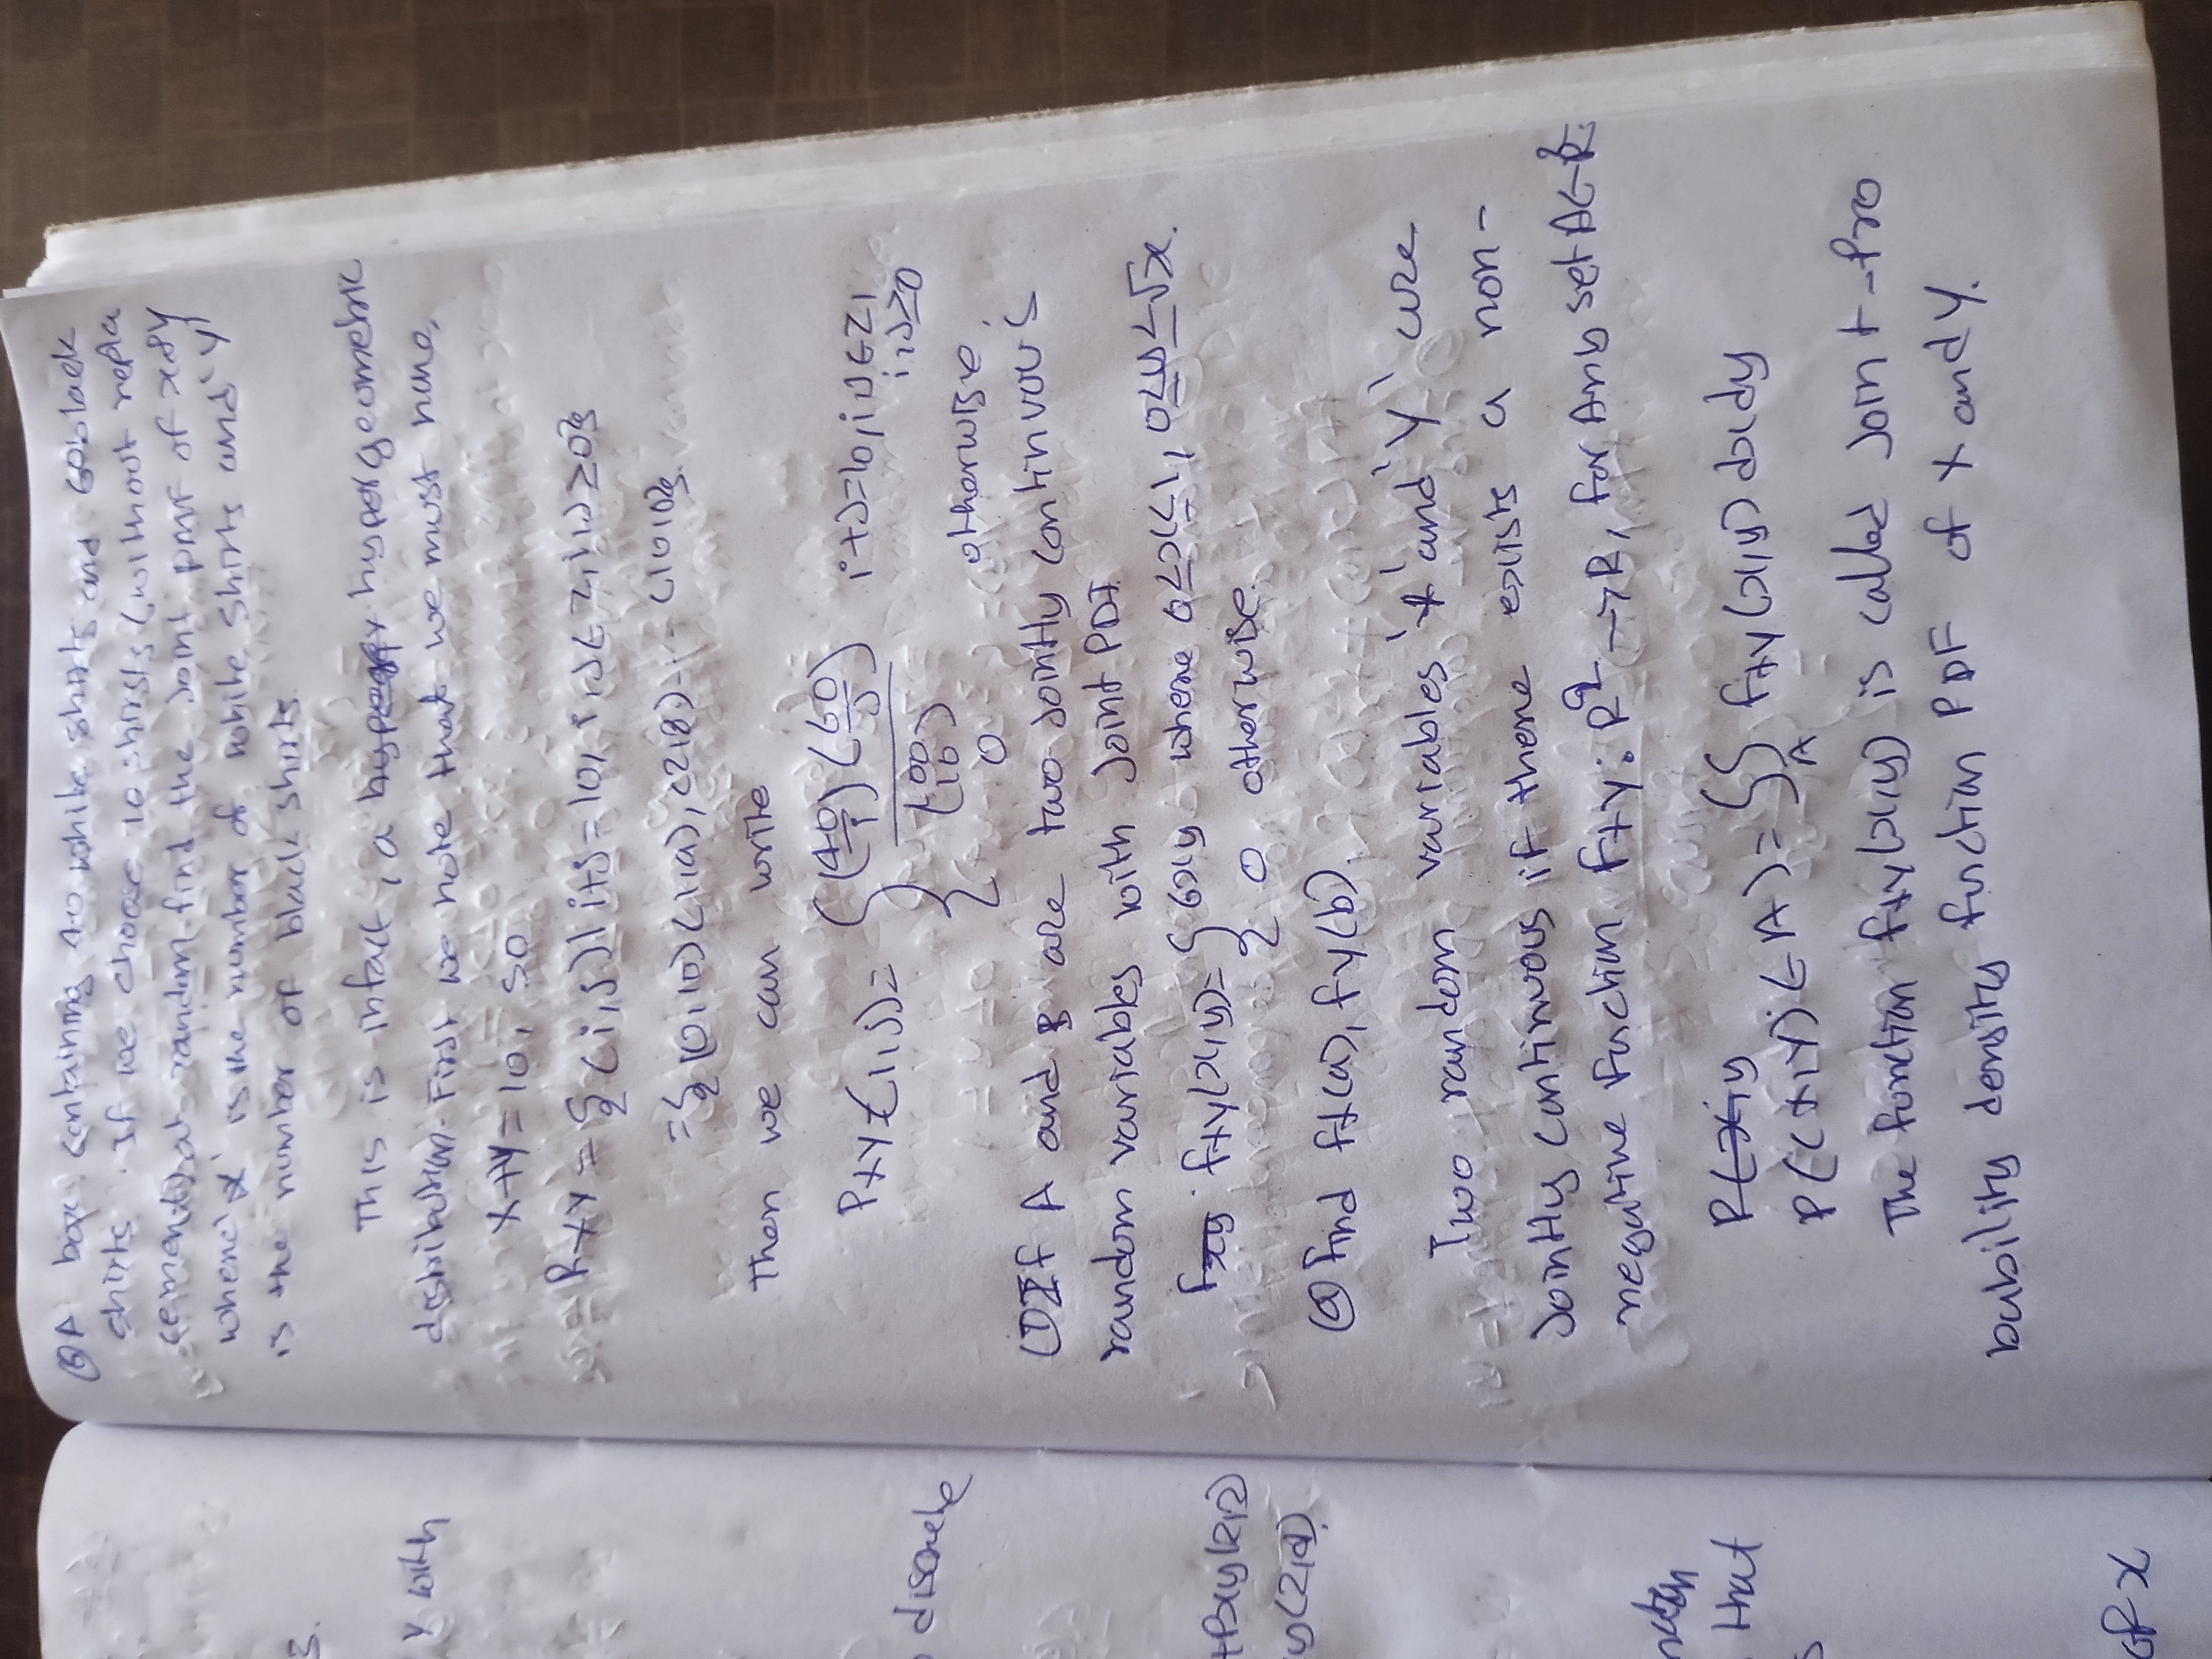 ⑥ A box containing 40 white shirts and 60 black
shirts. If we choose 10 shirsts (without repla
cement) at random. find the Joint pmf of x & y
where 'x' is the number of white shirts and 'y'
is the number of black shirts.
This is infact, a hypergeometric
distribution. First we note that we must have,
X+Y = 10, so
RXY = {(i,j) | i+j=10, i,j ∈ Z, i,j ≥ 0}
= {(0,10) (1,9), (2,8) - - (10,0)}.
Then we can write
PXY (i,j) = { (40/i) (60/j) / (100/10) i+j=10, i,j ∈ Z, i,j ≥ 0
0 otherwise.
(D If A and B are two jointly continvou's
random variables with joint PDF
fxy(x,y) = { 6xy where 0≤x≤1, 0≤y≤√x.
0 otherwise.
ⓐ Find fx(a), fy(b)
Two random variables 'x' and 'y' are
jointly continuous if there exists a non-
negative function fxy: R² → R, for Anb set A ∈ R²
P((x,y) ∈ A) = ∫∫A fxy(x,y) dxdy
The function fxy(x,y) is called joint - Pro
bability density function PDF of x and y.
S.
y with
discrete
that
of x